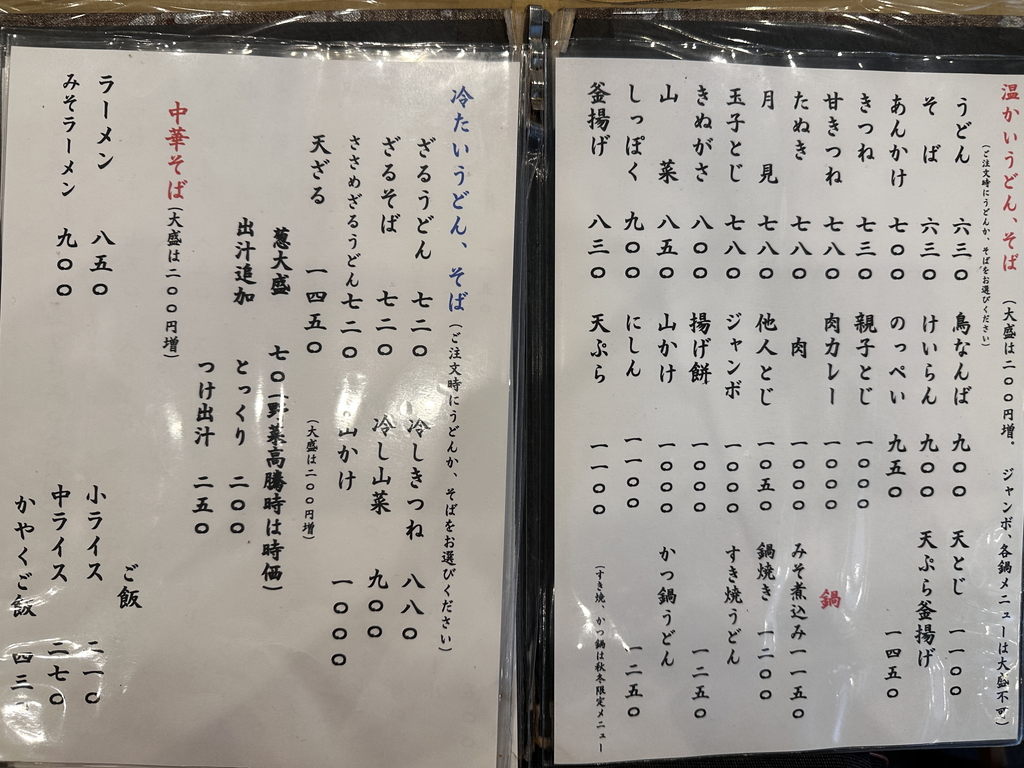 温かいうどん、そば (大盛は二〇〇円増。 ジャンボ、各鍋メニューは大盛不可)
(ご注文時にうどんか、そばをお選びください)
うどん 六三〇 鳥なんば 九〇〇 天とじ 一一〇〇
そば 六三〇 けいらん 九〇〇 天ぷら釜揚げ
あんかけ 七〇〇 のっぺい 九五〇 一四五〇
きつね 七三〇 親子とじ 一〇〇〇
甘きつね 七八〇 肉カレー 一〇〇〇 鍋
たぬき 七八〇 肉 一〇〇〇 みそ煮込み 一一五〇
月見 七八〇 他人とじ 一〇五〇 鍋焼き 一二〇〇
玉子とじ 七八〇 ジャンボ 一〇〇〇 すき焼うどん
きぬがさ 八〇〇 揚げ餅 一〇〇〇 一二五〇
山菜 八五〇 山かけ 一〇〇〇 かつ鍋うどん
しっぽく 九〇〇 にしん 一一〇〇 一二五〇
釜揚げ 八三〇 天ぷら 一一〇〇 (すき焼、かつ鍋は秋冬限定メニュー
冷たいうどん、そば (ご注文時にうどんか、そばをお選びください)
ざるうどん 七二〇 冷しきつね 八八〇
ざるそば 七二〇 冷し山菜 九〇〇
ささめざるうどん 七二〇 山かけ 一〇〇〇
天ざる 一四五〇 (大盛は二〇〇円増)
葱大盛 七〇 野菜高騰時は時価)
出汁追加 とっくり 二〇〇
つけ出汁 二五〇
中華そば (大盛は二〇〇円増)
ラーメン 八五〇
みそラーメン 九〇〇
ご飯
小ライス 二一〇
中ライス 二七〇
かやくご飯 四三